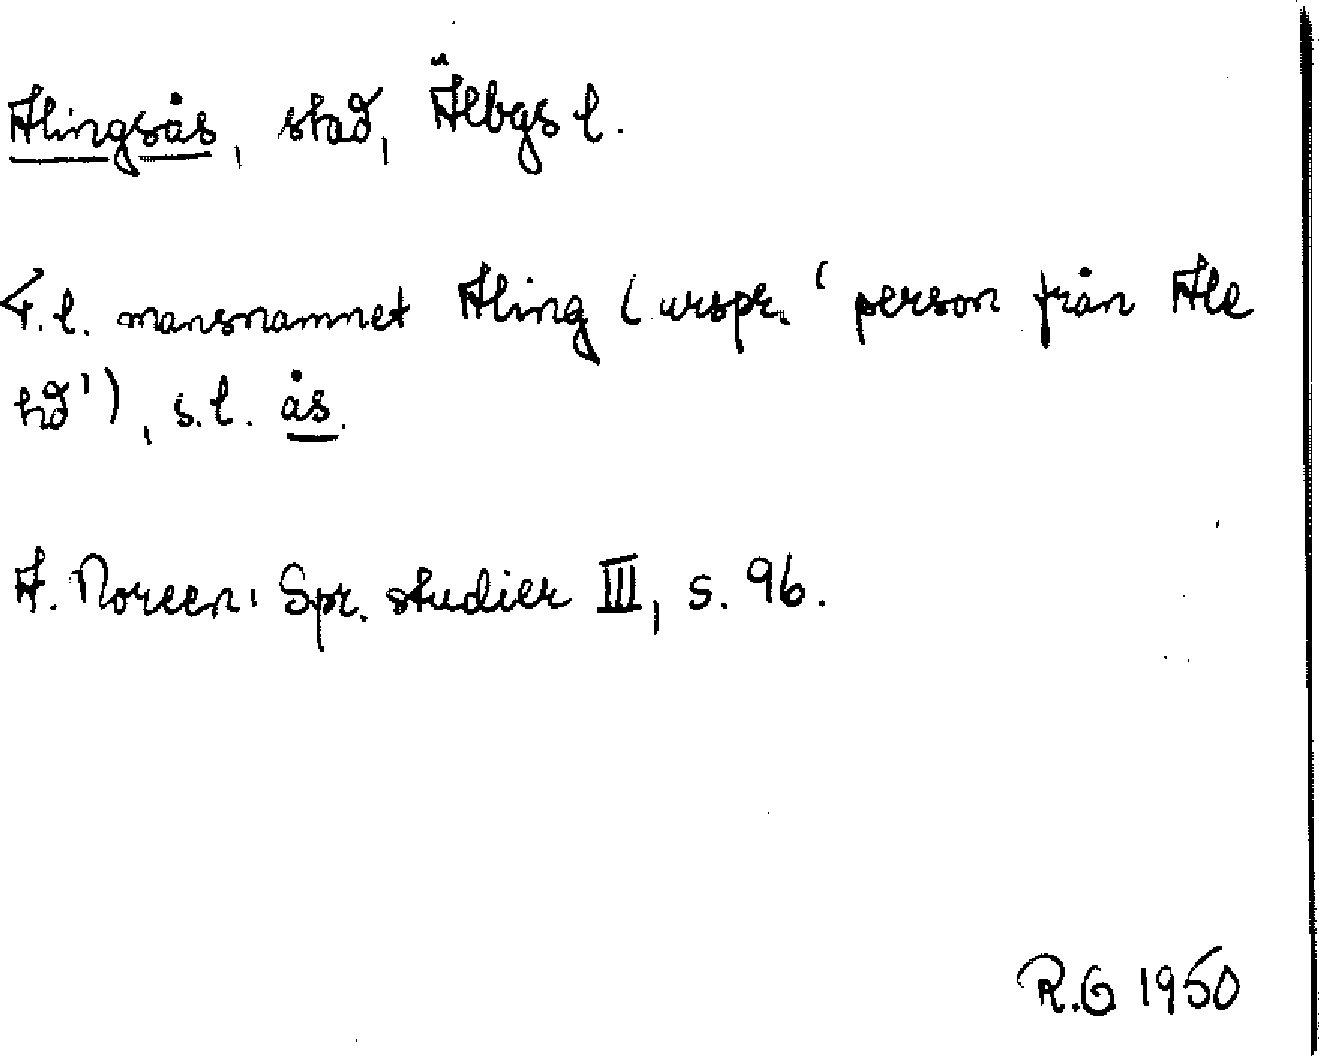 Alingsås, stad, Älbgs l.
F.l. mansnamnet Aling (urspr. 'person från Ale
hd'), s.l. ås.
A. Noreen: Spr. studier III, s. 96.
R.G 1950